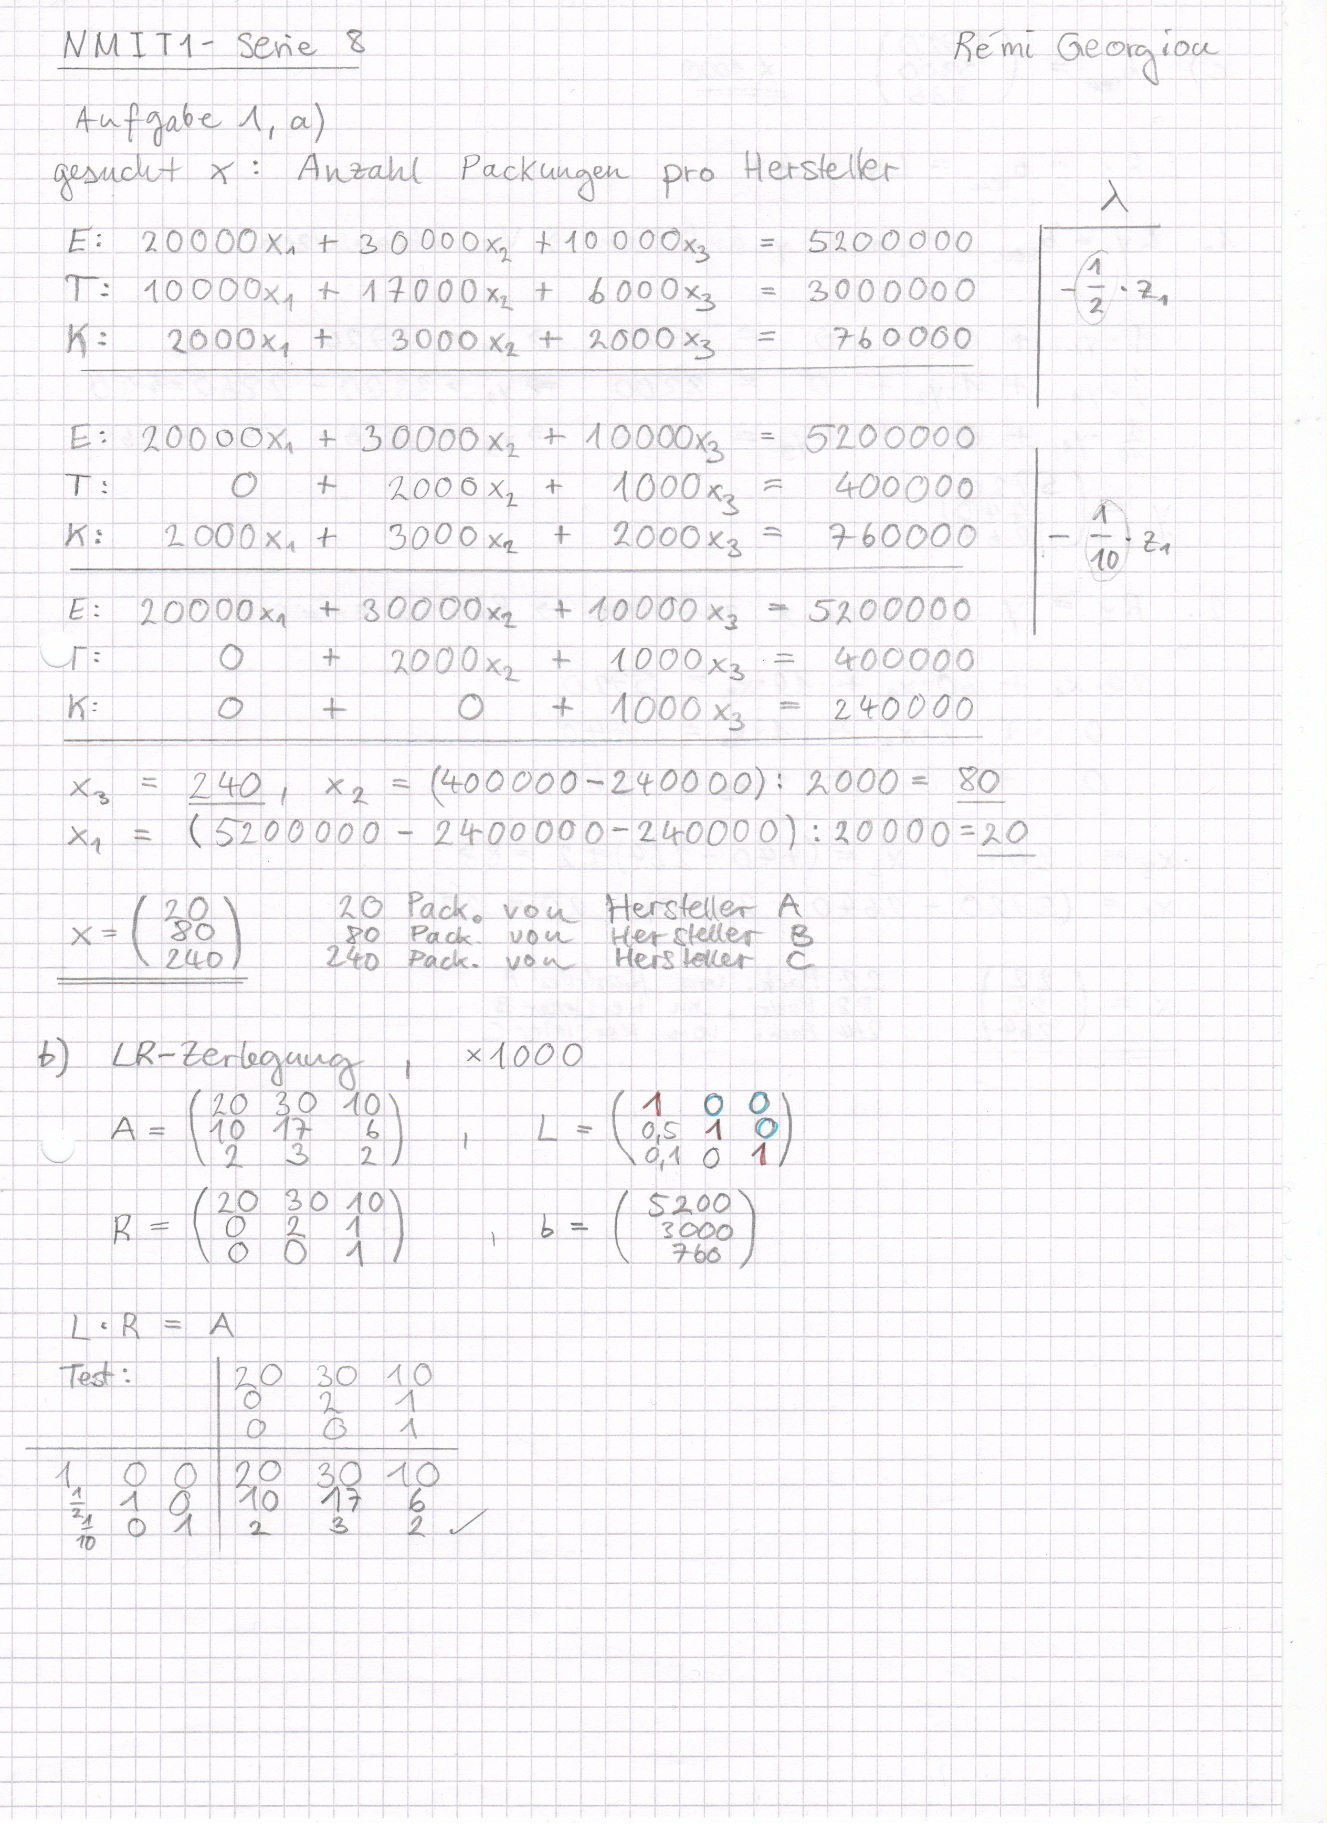 NMIT1 - Serie 8
Rémi Georgiou
Aufgabe 1, a)
gesucht x: Anzahl Packungen pro Hersteller
λ
E: 20000x₁ + 30000x₂ + 10000x₃ = 5200000
T: 10000x₁ + 17000x₂ + 6000x₃ = 3000000
- 1/2 · z₁
K: 2000x₁ + 3000x₂ + 2000x₃ = 760000
E: 20000x₁ + 30000x₂ + 10000x₃ = 5200000
T: 0 + 2000x₂ + 1000x₃ = 400000
K: 2000x₁ + 3000x₂ + 2000x₃ = 760000
- 1/10 · z₁
E: 20000x₁ + 30000x₂ + 10000x₃ = 5200000
T: 0 + 2000x₂ + 1000x₃ = 400000
K: 0 + 0 + 1000x₃ = 240000
x₃ = 240, x₂ = (400000-240000) : 2000 = 80
x₁ = (5200000 - 2400000 - 240000) : 20000 = 20
x = (20 80 240)
20 Pack. von Hersteller A
80 Pack. von Hersteller B
240 Pack. von Hersteller C
b) LR-Zerlegung, ×1000
A = (20 30 10
10 17 6
2 3 2)
, L = (1 0 0
0,5 1 0
0,1 0 1)
R = (20 30 10
0 2 1
0 0 1)
, b = (5200
3000
760)
L · R = A
Test: 20 30 10
0 2 1
0 0 1
1 0 0 20 30 10
1/2 1 0 10 17 6
1/10 0 1 2 3 2 ✓